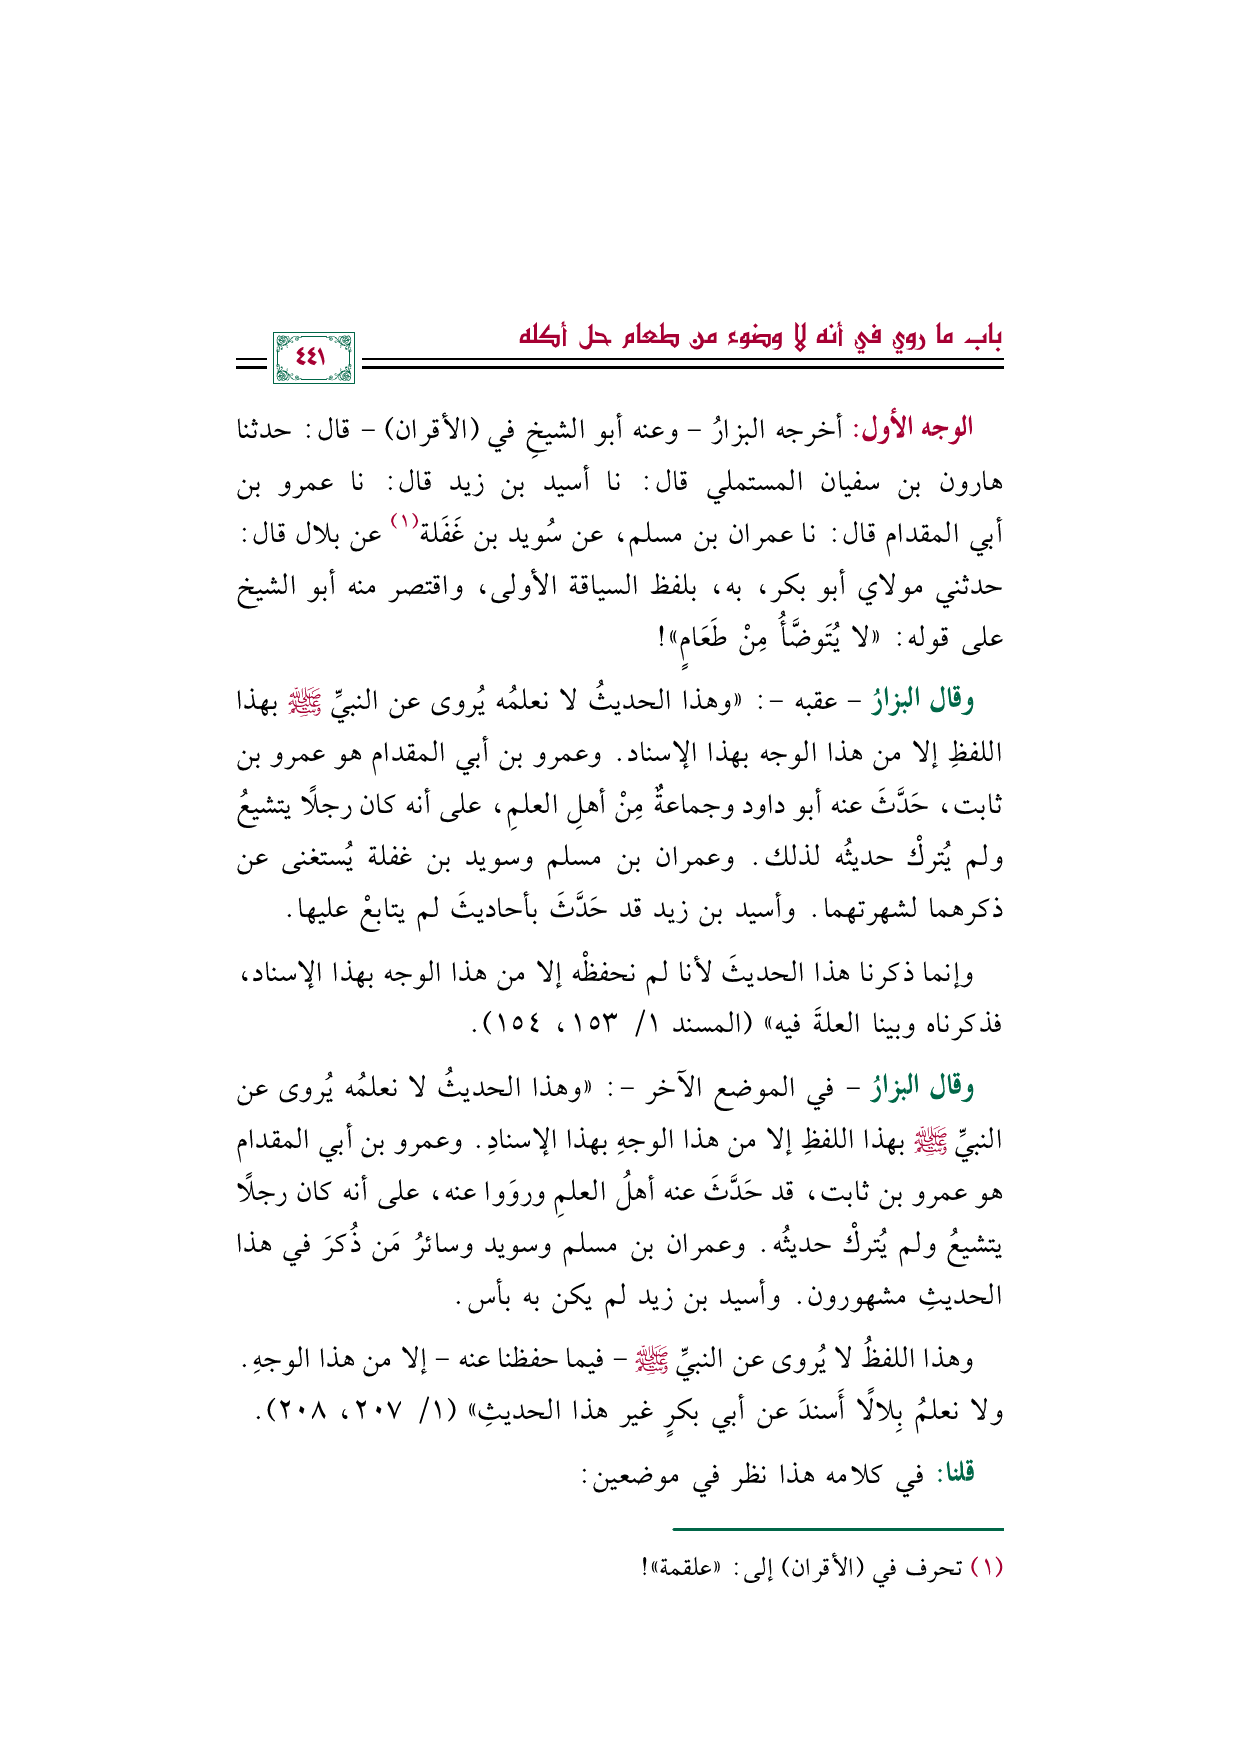 باب ما روي في أنه لا وضوء من طعام حل أكله
٤٤١
الوجه الأول: أخرجه البزارُ - وعنه أبو الشيخِ في (الأقران) - قال: حدثنا
هارون بن سفيان المستملي قال: نا أسيد بن زيد قال: نا عمرو بن
أبي المقدام قال: نا عمران بن مسلم، عن سُويد بن غَفَلة(١) عن بلال قال:
حدثني مولاي أبو بكر، به، بلفظ السياقة الأولى، واقتصر منه أبو الشيخ
على قوله: «لا يُتَوضَّأُ مِنْ طَعَامٍ»!
وقال البزارُ - عقبه -: «وهذا الحديثُ لا نعلمُه يُروى عن النبيِّ ﷺ بهذا
اللفظِ إلا من هذا الوجه بهذا الإسناد. وعمرو بن أبي المقدام هو عمرو بن
ثابت، حَدَّثَ عنه أبو داود وجماعةٌ مِنْ أهلِ العلمِ، على أنه كان رجلًا يتشيعُ
ولم يُتركْ حديثُه لذلك. وعمران بن مسلم وسويد بن غفلة يُستغنى عن
ذكرهما لشهرتهما. وأسيد بن زيد قد حَدَّثَ بأحاديثَ لم يتابعْ عليها.
وإنما ذكرنا هذا الحديثَ لأنا لم نحفظْه إلا من هذا الوجه بهذا الإسناد،
فذكرناه وبينا العلةَ فيه» (المسند ١/ ١٥٣، ١٥٤).
وقال البزارُ - في الموضع الآخر -: «وهذا الحديثُ لا نعلمُه يُروى عن
النبيِّ ﷺ بهذا اللفظِ إلا من هذا الوجهِ بهذا الإسنادِ. وعمرو بن أبي المقدام
هو عمرو بن ثابت، قد حَدَّثَ عنه أهلُ العلمِ وروَوا عنه، على أنه كان رجلًا
يتشيعُ ولم يُتركْ حديثُه. وعمران بن مسلم وسويد وسائرُ مَن ذُكرَ في هذا
الحديثِ مشهورون. وأسيد بن زيد لم يكن به بأس.
وهذا اللفظُ لا يُروى عن النبيِّ ﷺ - فيما حفظنا عنه - إلا من هذا الوجهِ.
ولا نعلمُ بِلالًا أَسندَ عن أبي بكرٍ غير هذا الحديثِ» (١/ ٢٠٧، ٢٠٨).
قلنا: في كلامه هذا نظر في موضعين:
(١) تحرف في (الأقران) إلى: «علقمة»!